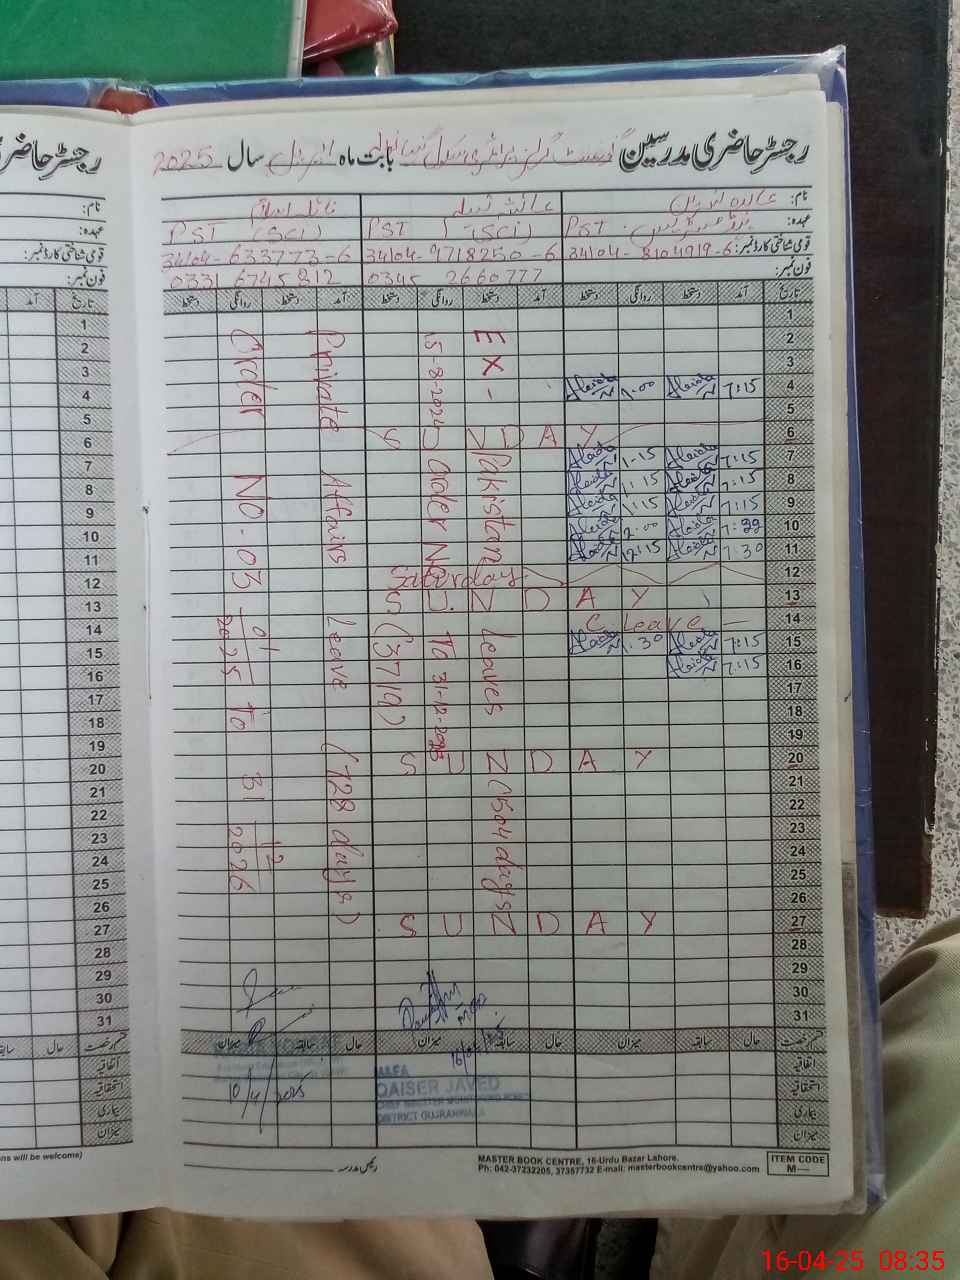 رجسٹر حاضری مدرسین گورنمنٹ گرلز پرائمری سکول بابت ماہ اپریل سال 2025
نام: عائدہ پروین عائشہ نبیلہ نائلہ اسلام
عہدہ: ہیڈ مسٹریس PST PST (SCI) PST (SCI)
قومی شناختی کارڈ نمبر: 34104-8104919-6 34104-9718250-6 34104-633773-6
فون نمبر: 0345 2660777 0331 6745812
تاریخ آمد دستخط روانگی دستخط آمد دستخط روانگی دستخط آمد دستخط روانگی دستخط
1
2
3
4 7:15 1:00
5
6 SUNDAY
7 7:15 1:15
8 7:15 1:15
9 7:15 1:15
10 2:00
11 7:30 12:15
12 Saturday
13 SUNDAY
14 C. Leave
15 7:15 1:30
16 7:15
17
18
19
20 SUNDAY
21
22
23
24
25
26
27 SUNDAY
28
29
30
31
EX- Pakistan Leaves (504 days)
15-8-2024 Order No. To 31-12-2025
(3719)
Private Affairs Leave (728 days)
Order No. 03 01/2025 To 31 12/2026
قسم رخصت حال سابقہ میزان حال سابقہ میزان حال سابقہ میزان
اتفاقیہ
استحقاقیہ
بیماری
میزان
10/4/2025
QAISER JAVED
DISTRICT GUJRANWALA
رئیس مدرسہ
MASTER BOOK CENTRE, 16-Urdu Bazar Lahore.
Ph: 042-37232205, 37357732 E-mail: masterbookcentre@yahoo.com
ITEM CODE
M—
ns will be welcome)
16-04-25 08:35